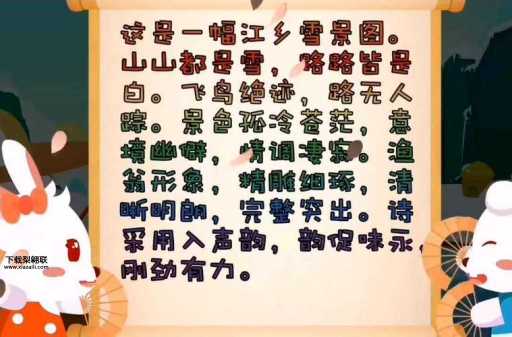 这是一幅江乡雪景图。
山山都是雪，路路皆是
白。飞鸟绝迹，路无人
踪。景色孤冷苍茫，意
境幽僻，情调凄寂。渔
翁形象，精雕细琢，清
晰明朗，完整突出。诗
采用入声韵，韵促味永，
刚劲有力。
下载梨翱联
www.xiazaili.com